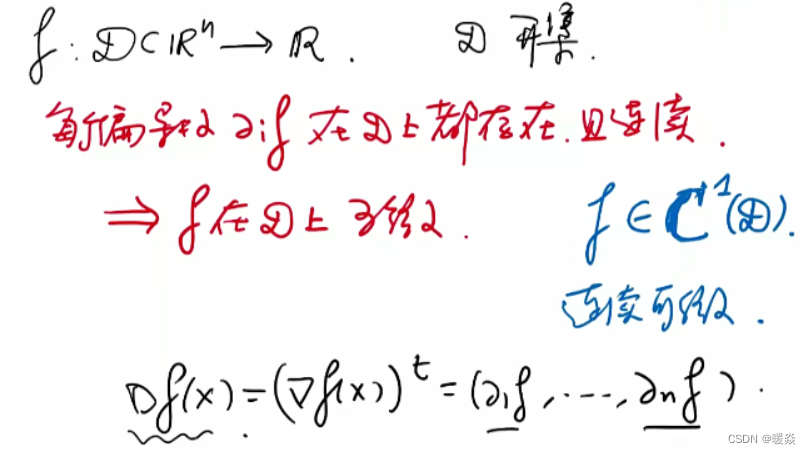 f : D ⊂ ℝⁿ → ℝ . D 开集.
每个偏导数 ∂ᵢf 在 D 上都存在.且连续.
⇒ f 在 D 上可微. f ∈ C¹(D).
连续可微.
Df(x) = (∇f(x))ᵗ = (∂₁f, ⋯, ∂ₙf).
CSDN @暖焱